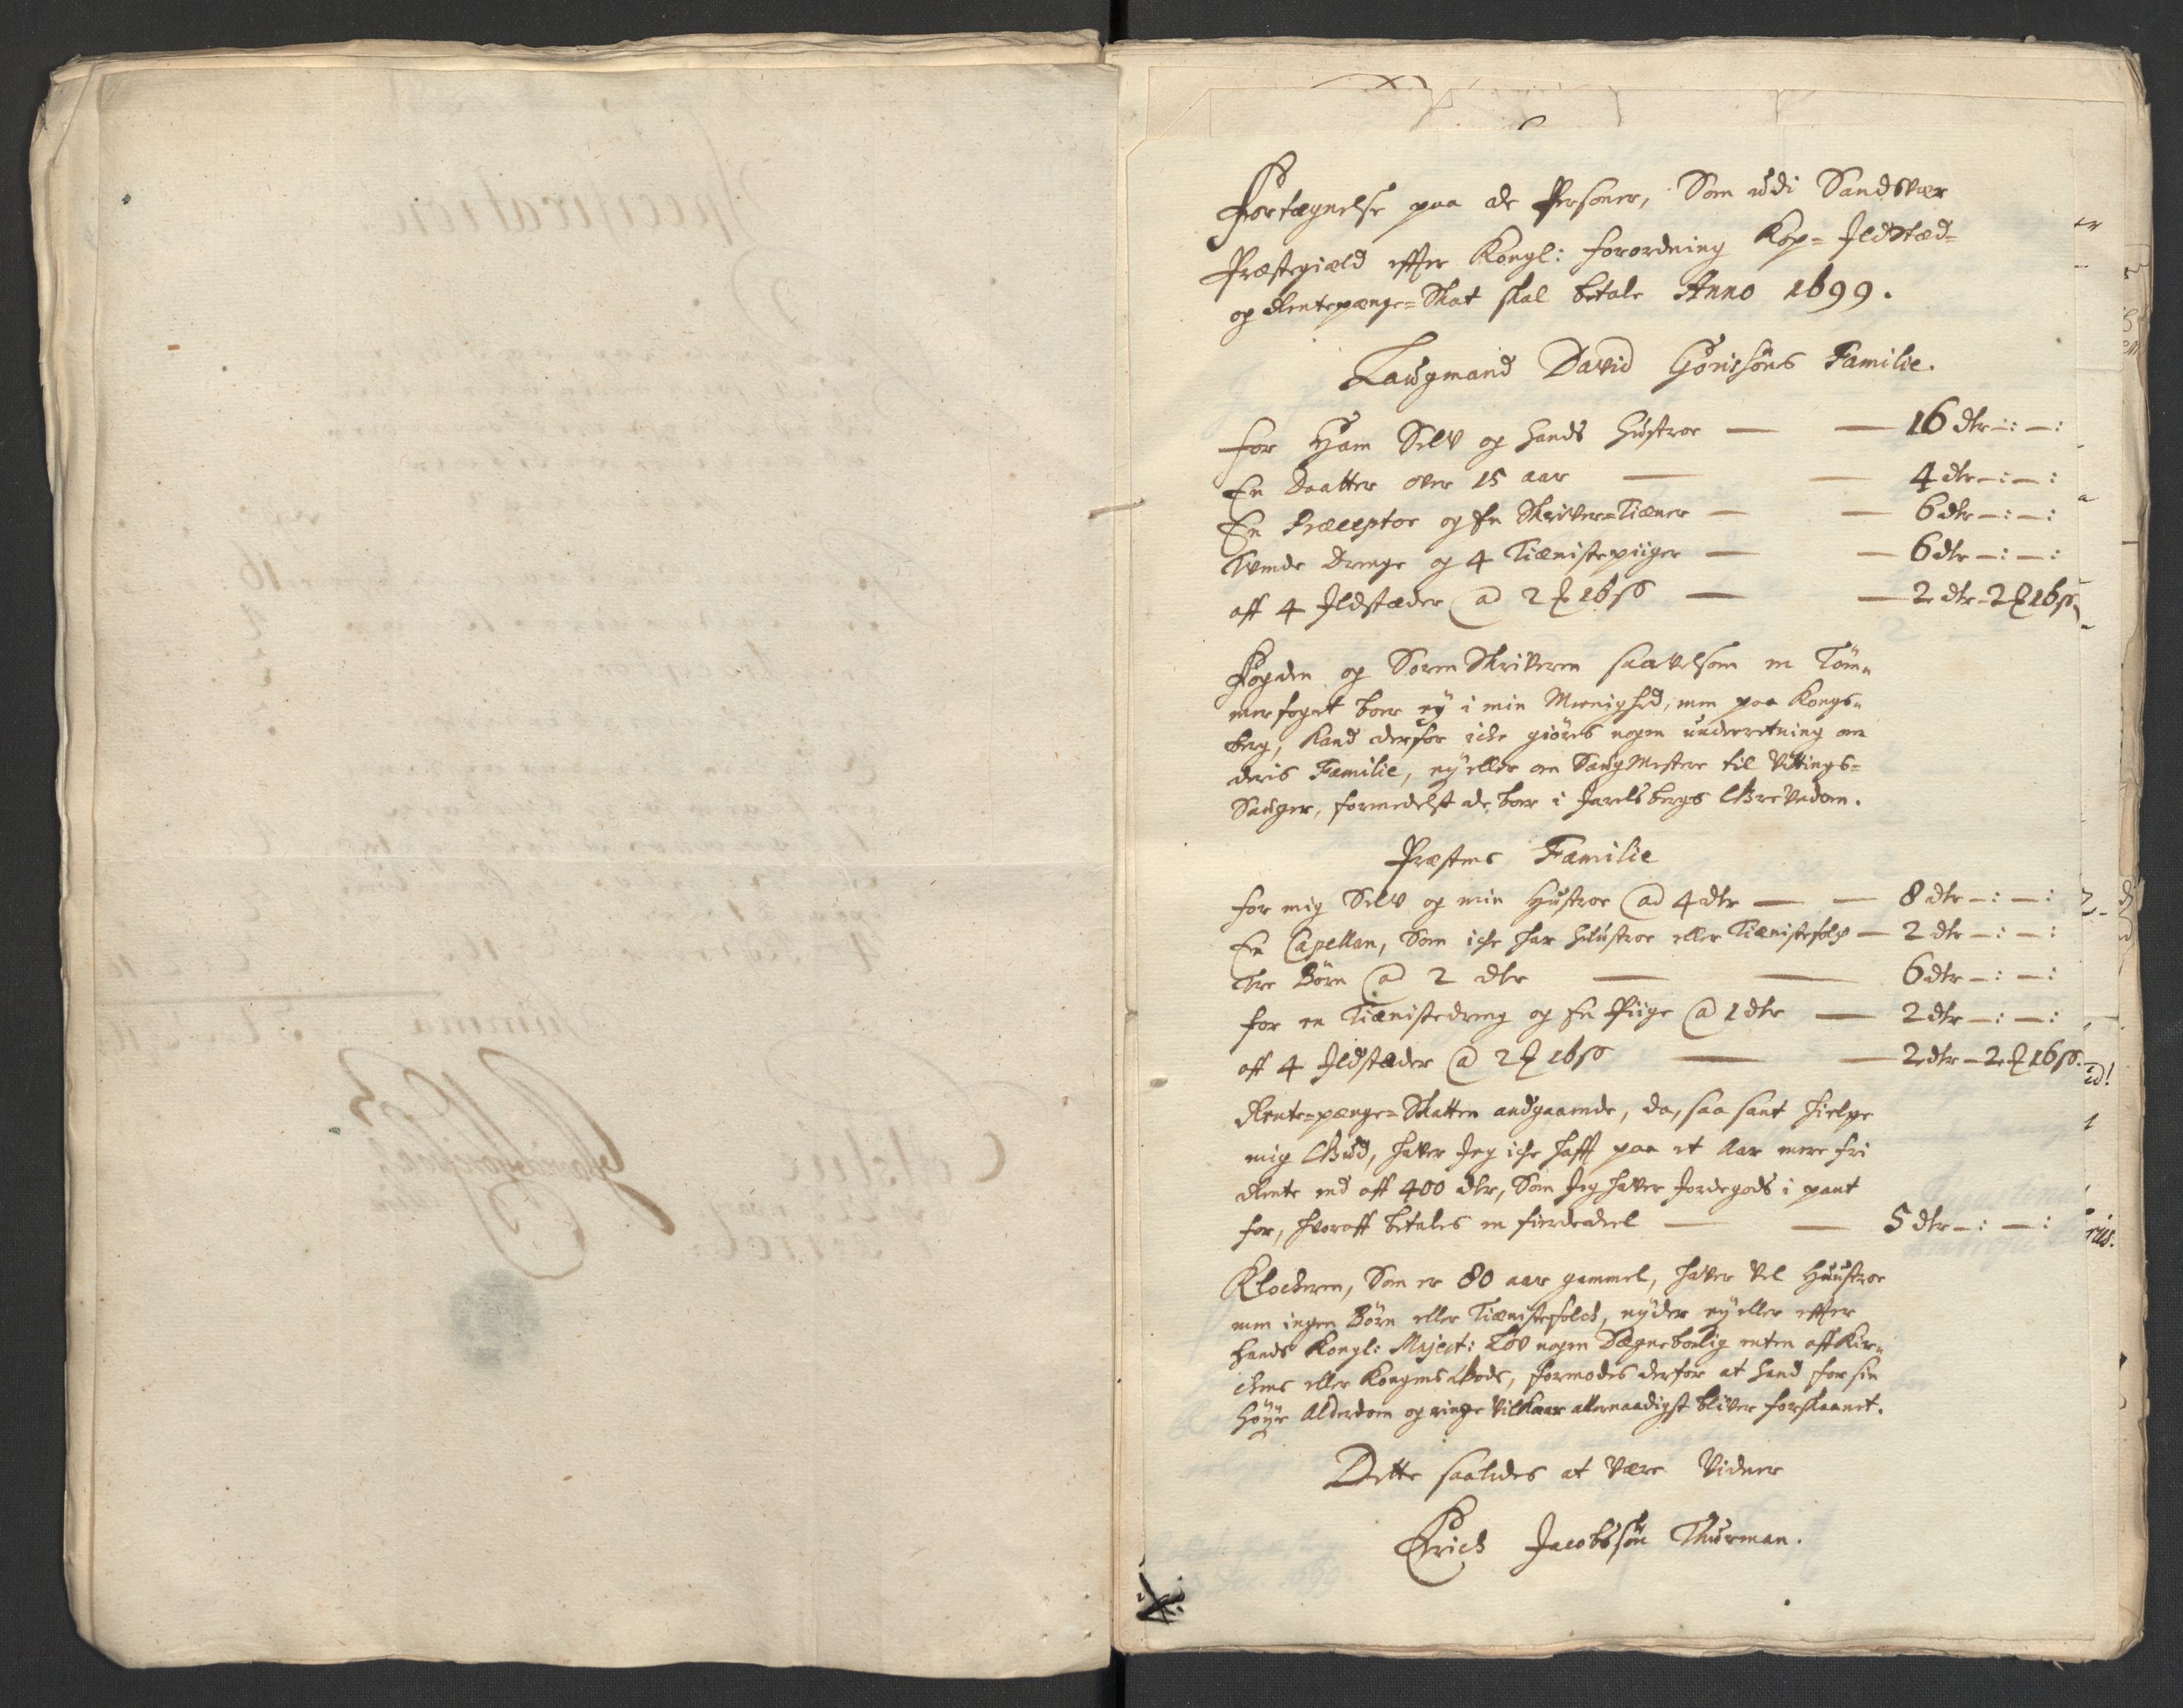 Fortægnelse paa de Personer, Som udi Sandsvær
Præstegiæld effter Kongl: forordning Kop= Jldstæd=
og Rentepænge=Skat skal betale Anno 1699.
Laugmand David Görissöns Familie.
for Ham Selv og hands Hustroe — — 16 dlr —: —:
En Daatter over 15 aar — — 4 dlr —: —:
En Præceptor og En Skriver=Tiæner — — 6 dlr —: —:
Tvende Drenge og 4 Tiænistepiiger — — 6 dlr —: —:
aff 4 Jldstæder @ 2 ₰ 16 ß — — 2 dlr - 2 ₰ 16 ß
Fogden og Soren Skriveren saavelsom en Töm=
merfoget boer ey i min Menighed, men paa Kongs=
berg, kand derfor icke giöres nogen underretning om
deris Familie, ey eller om Saug Mestere til Vittings=
Sauger, formedelst de boer i Jarlsbergs Grevedom.
Præstens Familie
for mig Selv og min Hustroe @ 4 dlr — — 8 dlr —: —:
En Capellan, Som iche har Huustroe eller Tiænistefolch — 2 dlr —: —:
Tre Börn @ 2 dlr — — 6 dlr —: —:
for en Tiænistedreng og En Piige @ 1 dlr — 2 dlr —: —:
aff 4 Jldstæder @ 2 ₰ 16 ß — — 2 dlr - 2 ₰ 16 ß.
Rente=pænge=Skatten andgaaende, da, saa sant hielpe
mig Gud, haver Jeg iche hafft paa et Aar mere fri
Rente end aff 400 dlr, Som Jeg haver Jordegods i pant
for, hvoraff betales en fierdedeel — — 5 dlr —: —:
Klockeren, Som er 80 aar gammel, haver vel Huustroe
men ingen Börn eller Tiænistefolck, nyder ey eller effter
hands Kongl: Majest: Lov nogen Degnebolig enten aff Kir=
chens eller Kongens Gods, formodes derfor at hand for sin
höye Alderdom og ringe Vilkaar allernaadigst bliver forskaanet.
Dette saaledes at være Vidner
Erich Jacobssön Thurman.